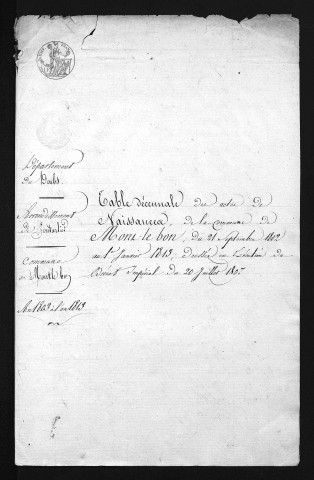 Département
du Doubs.
Arrondissement
de Pontarlier
Commune
de Montlebon
An 1803 à l'an 1813
Table décennale des actes de
Naissances, de la commune de
Mont-le-bon, du 21 Septembre 1802
au 1er Janvier 1813, dressée en Exécution du
Décret Impérial du 20 Juillet 1807